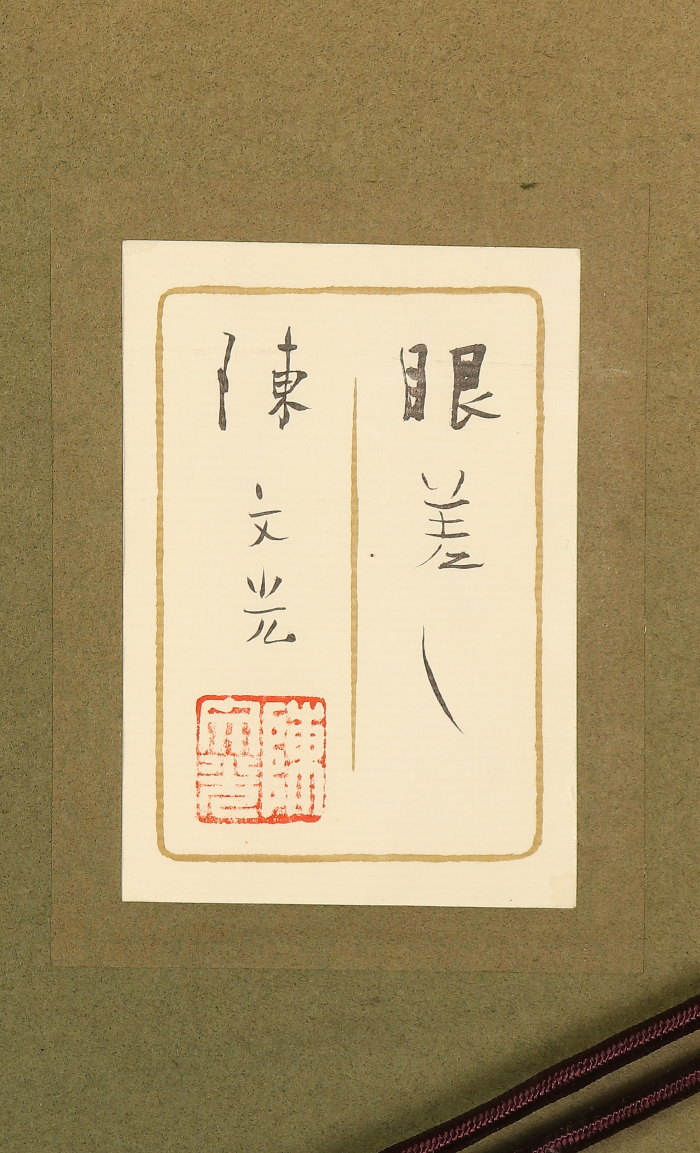 眼差し
陳文光